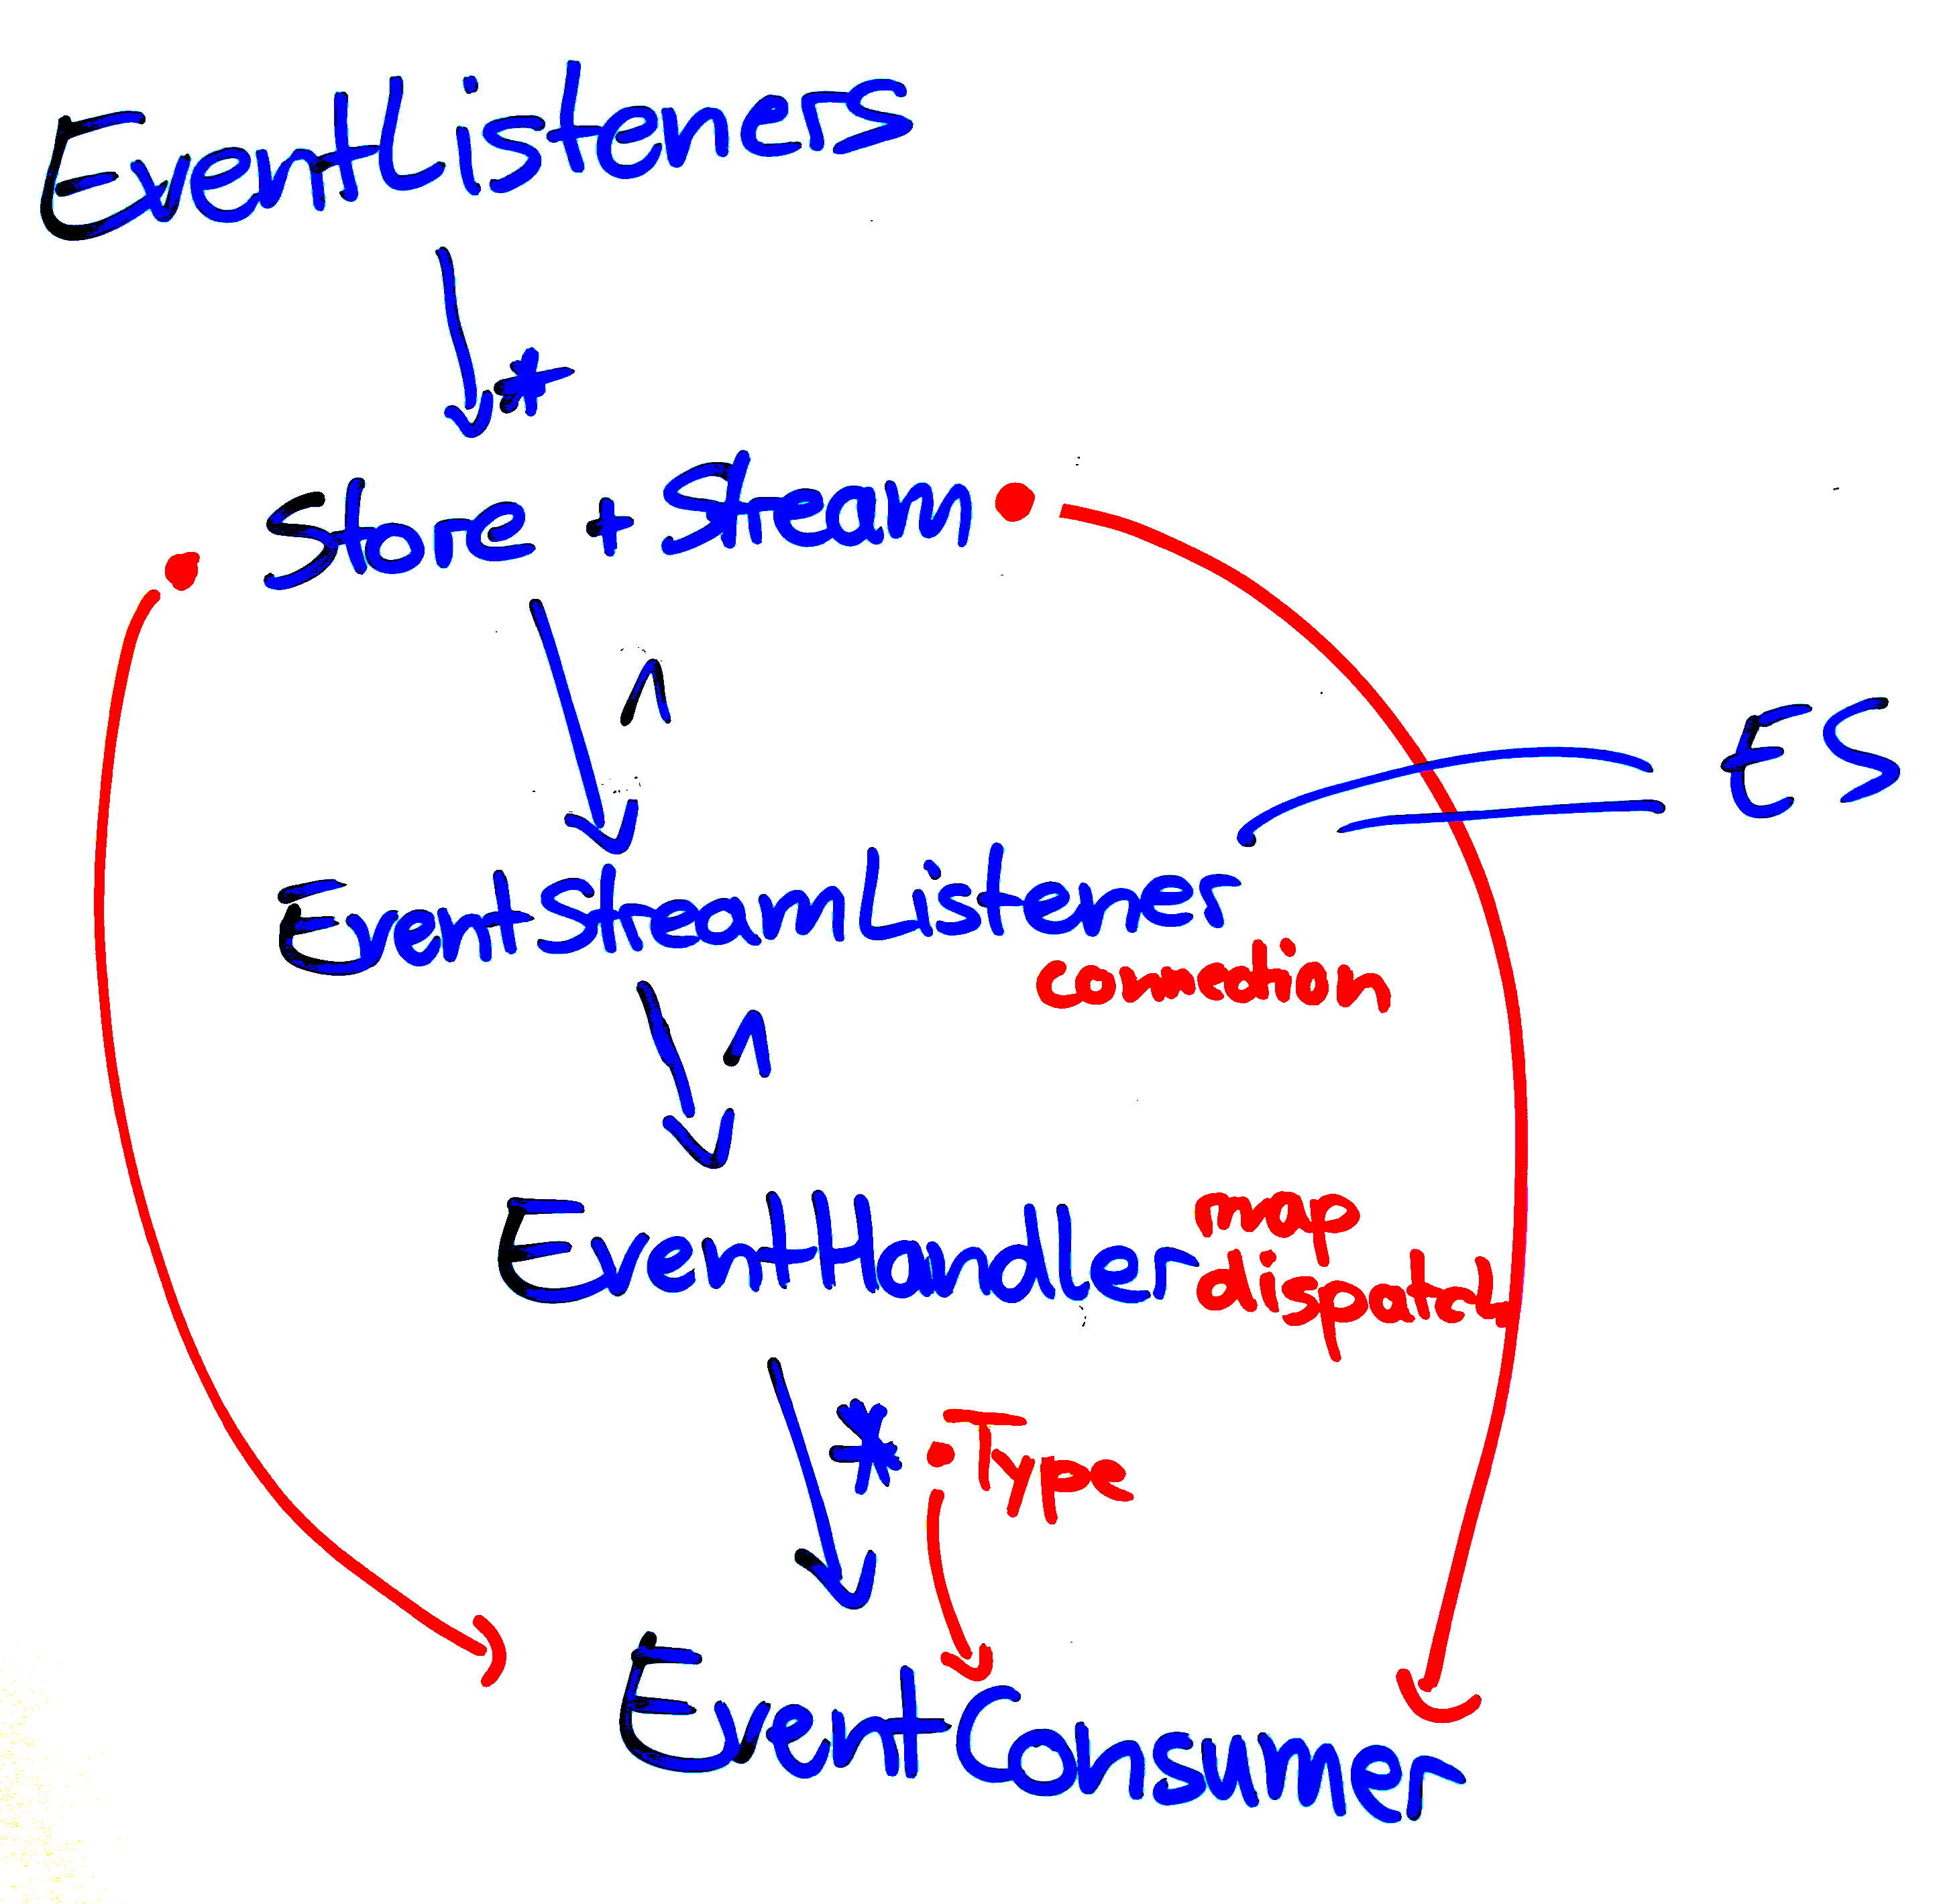 EventListeners
*
Store + Stream
1
ES
EventStreamListener
connection
1
map
EventHandler
dispatch
* Type
EventConsumer